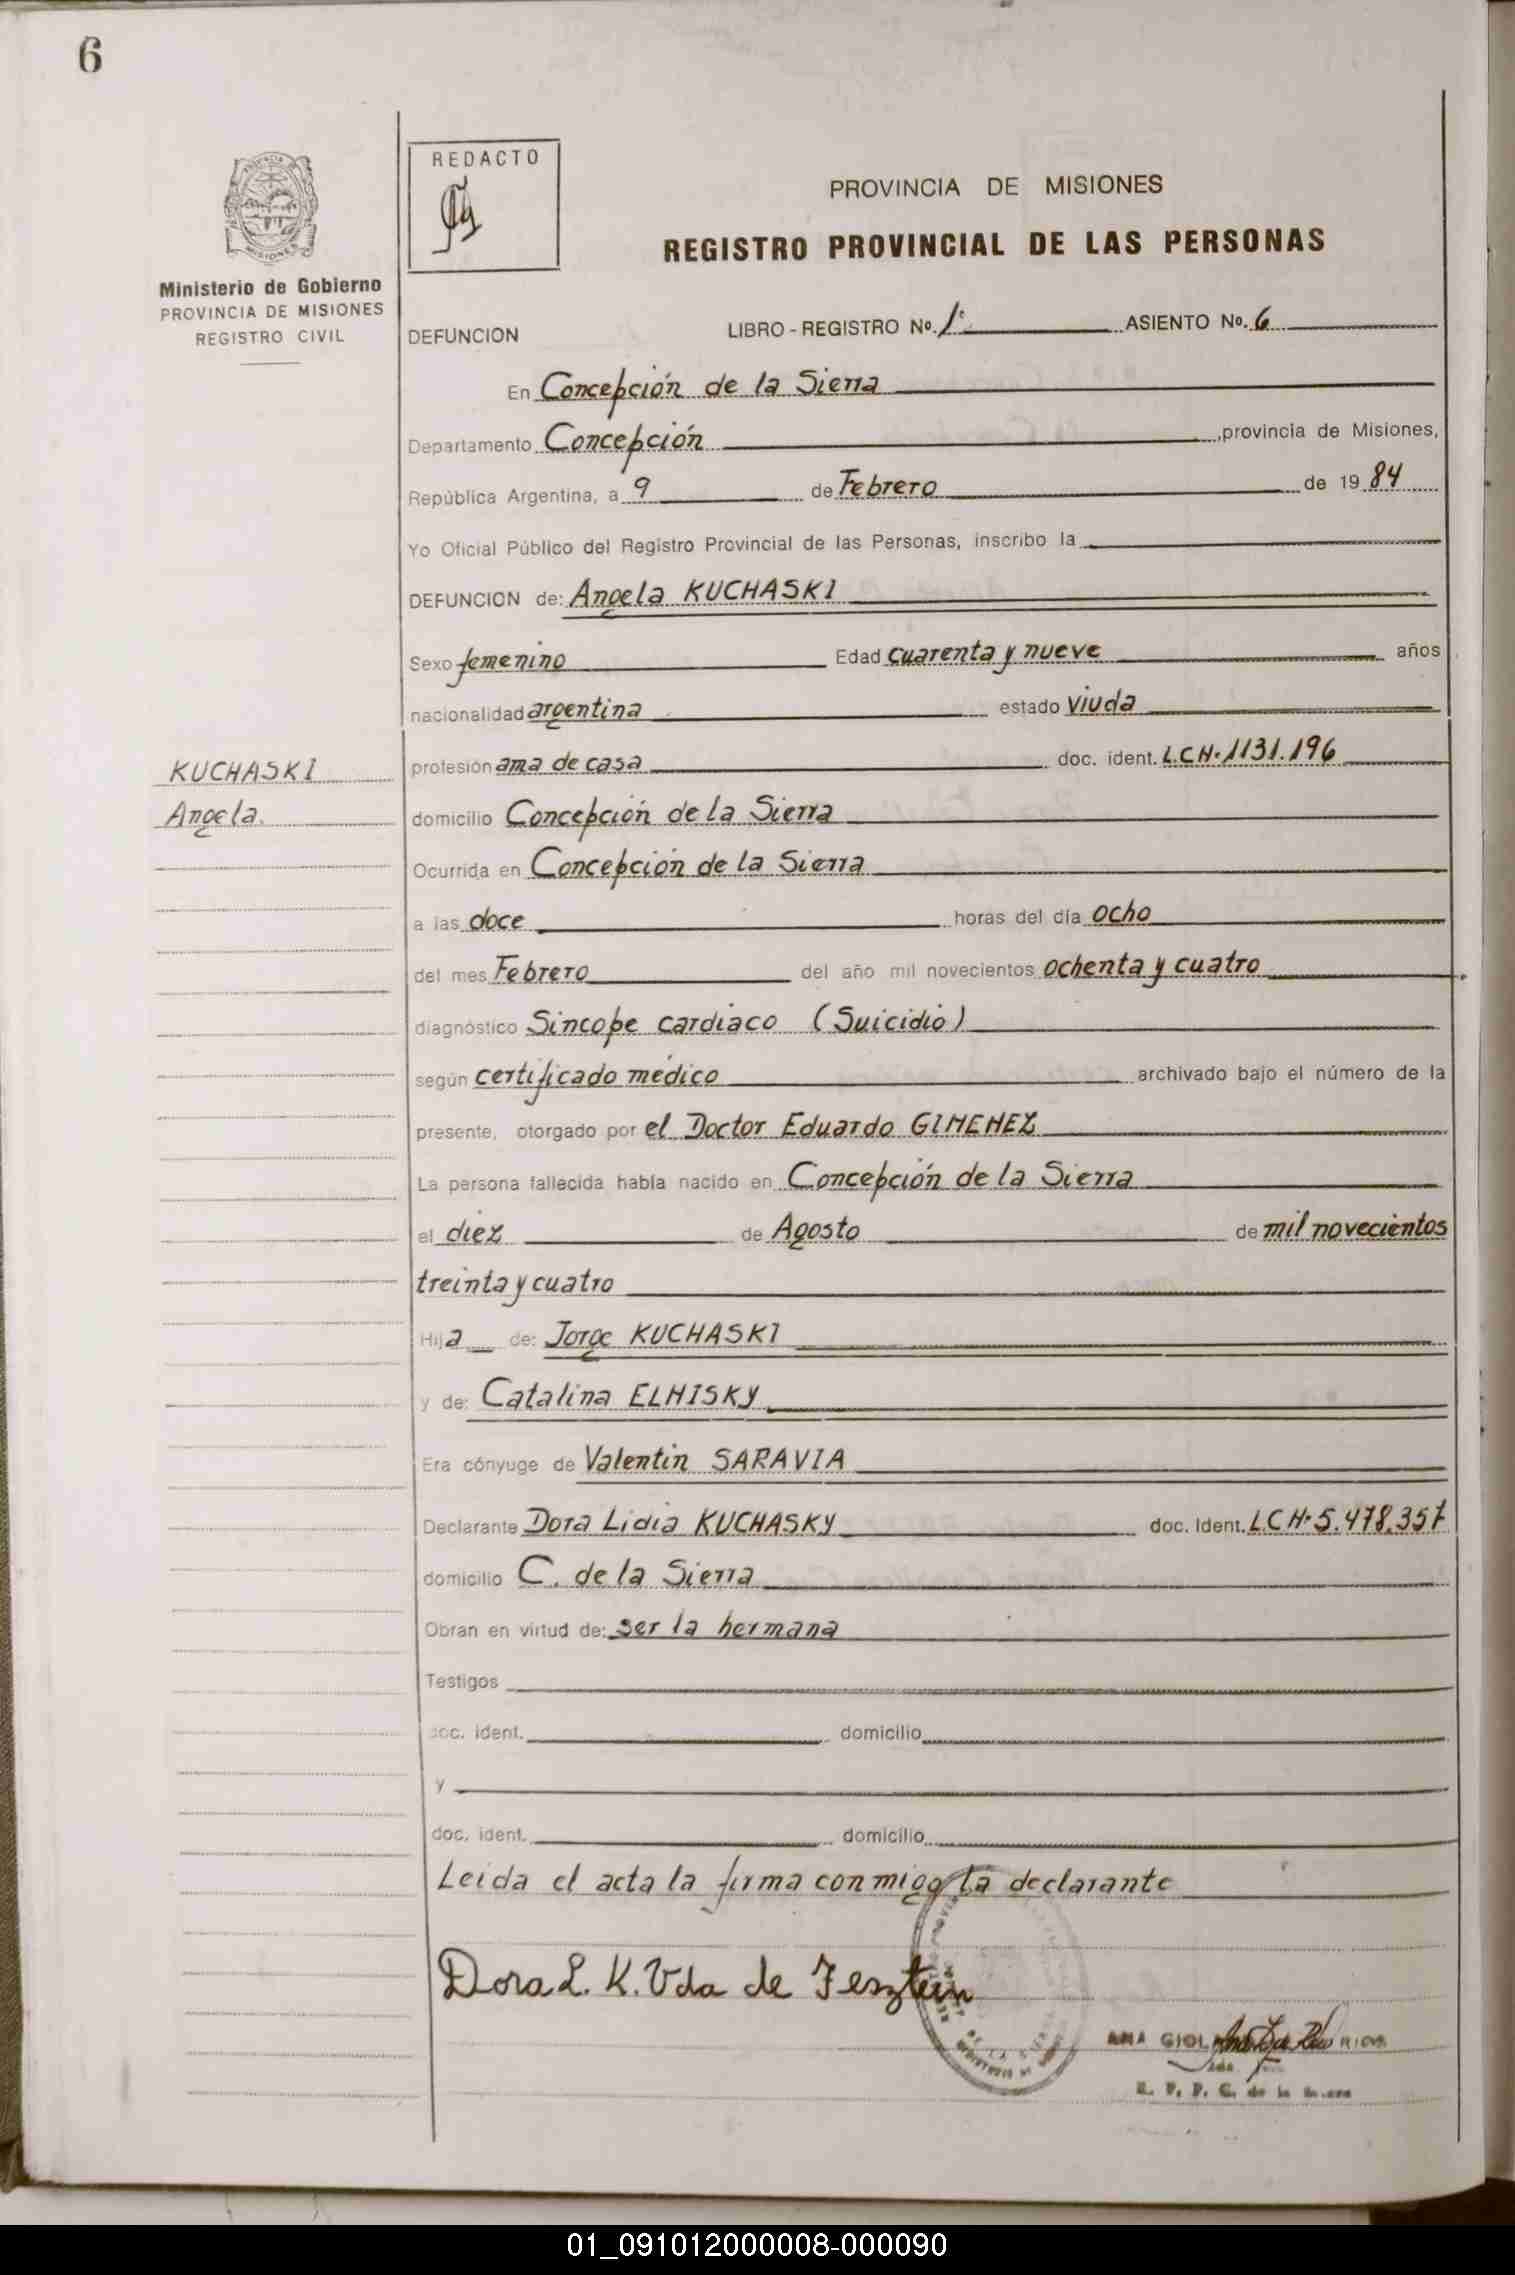 6
REDACTO
PROVINCIA DE MISIONES
REGISTRO PROVINCIAL DE LAS PERSONAS
Ministerio de Gobierno
PROVINCIA DE MISIONES
REGISTRO CIVIL
DEFUNCION LIBRO - REGISTRO Nº. 1º ASIENTO Nº. 6
En Concepción de la Sierra
Departamento Concepción, provincia de Misiones,
República Argentina, a 9 de Febrero de 1984
Yo Oficial Público del Registro Provincial de las Personas, inscribo la
DEFUNCION de: Angela KUCHASKI
Sexo femenino Edad cuarenta y nueve años
nacionalidad argentina estado viuda
KUCHASKI
Angela.
profesión ama de casa doc. ident. L.C.Nº 1131.196
domicilio Concepción de la Sierra
Ocurrida en Concepción de la Sierra
a las doce horas del día ocho
del mes Febrero del año mil novecientos ochenta y cuatro
diagnóstico Sincope cardiaco (Suicidio)
según certificado medico archivado bajo el número de la
presente, otorgado por el Doctor Eduardo GIMENEZ
La persona fallecida había nacido en Concepción de la Sierra
el diez de Agosto de mil novecientos
treinta y cuatro
Hija de: Jorge KUCHASKI
y de: Catalina ELMISKY
Era cónyuge de Valentin SARAVIA
Declarante Dora Lidia KUCHASKY doc. Ident. L.C.Nº 5.478.357
domicilio C. de la Sierra
Obran en virtud de: ser la hermana
Testigos
doc. ident. domicilio
y
doc. ident. domicilio
Leida el acta la firma conmigo la declarante
Dora L. K. Vda de
ANA RIOS
01_091012000008-000090